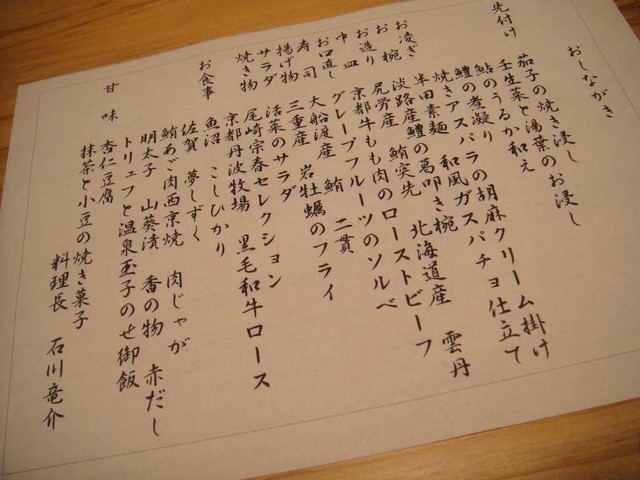 おしながき
先付け 茄子の焼き浸し
壬生菜と湯葉のお浸し
鮎のうるか和え
鱧の煮凝り
焼きアスパラの胡麻クリーム掛け
お凌ぎ 半田素麺 和風ガスパチョ仕立て
お椀 淡路産鱧の葛叩き椀
お造り 尻労産 鮪突先 北海道産 雲丹
中皿 京都牛もも肉のローストビーフ
お口直し グレープフルーツのソルベ
寿司 大船渡産 鮪 二貫
揚げ物 三重産 岩牡蠣のフライ
サラダ 活菜のサラダ
尾崎宗春セレクション
焼き物 京都丹波牧場 黒毛和牛ロース
お食事 魚沼 こしひかり
佐賀 夢しずく
鮪あご肉西京焼 肉じゃが
明太子 山葵漬 香の物 赤だし
トリュフと温泉玉子のせ御飯
甘味 杏仁豆腐
抹茶と小豆の焼き菓子
料理長 石川竜介